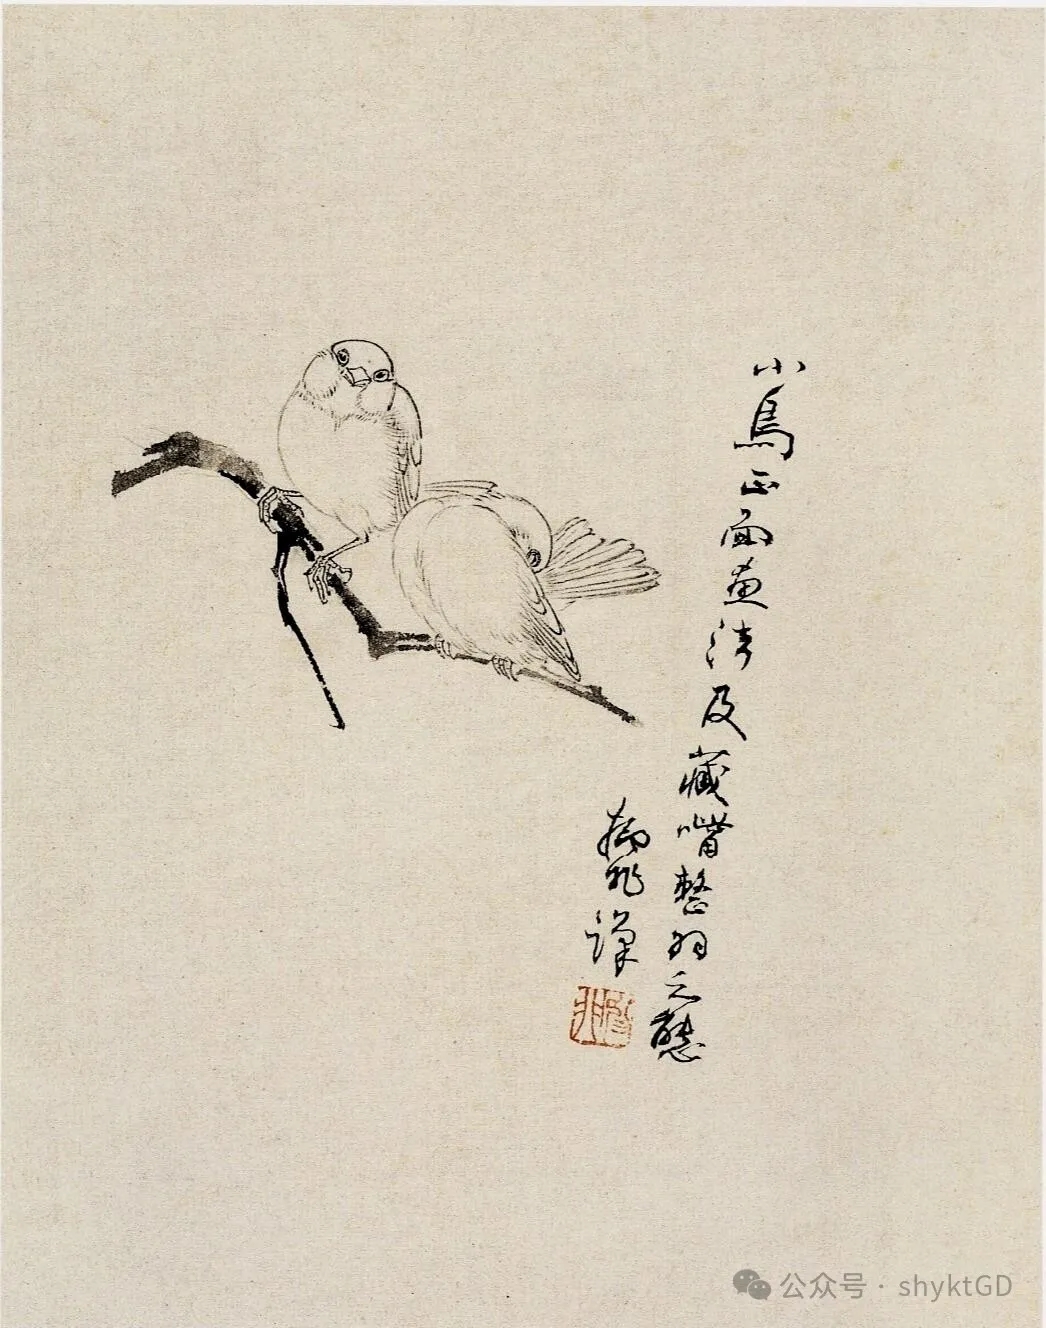 小鳥正面畫法及藏嘴整羽之態
公众号 · shyktGD